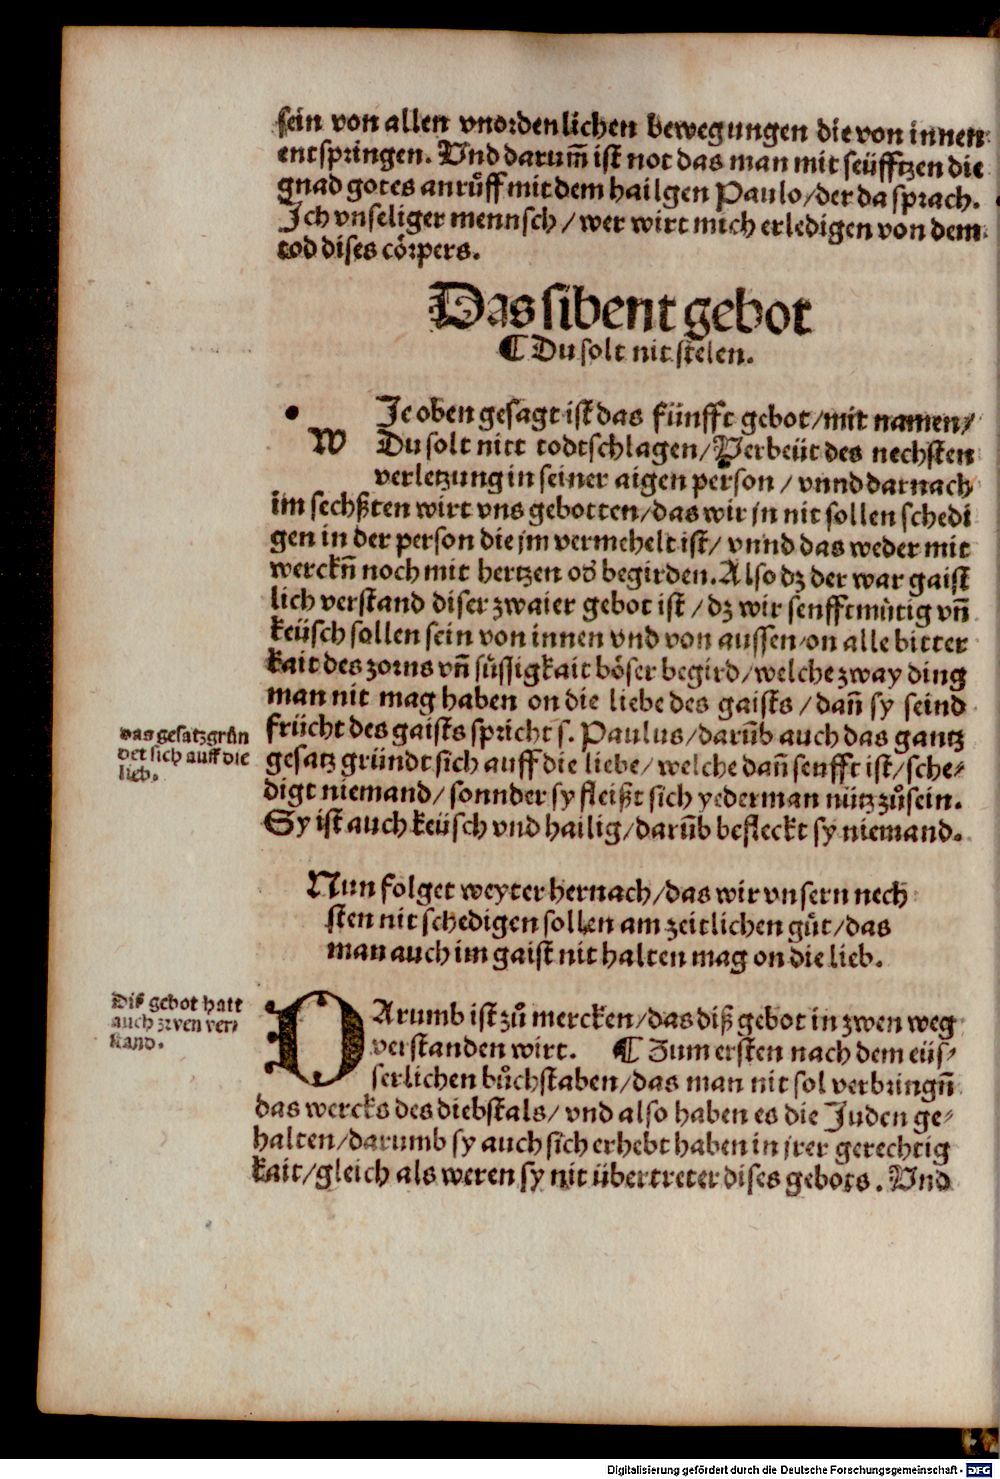 sein von allen vnordenlichen bewegungen die von innen
entspringen. Vnd darum̄ ist not das man mit seüfftzen die
gnad gotes anrůff mit dem hailgen Paulo/der da sprach.
Ich vnseliger mennsch/wer wirt mich erledigen von dem
tod dises cörpers.
Das sibent gebot
¶ Du solt nit stelen.
WIe oben gesagt ist das fünfft gebot/mit namen/
Du solt nitt todtschlagen/Verbeüt des nechsten
verletzung in seiner aigen person/vnnd darnach
im sechßten wirt vns gebotten/das wir jn nit sollen schedi
gen in der person die jm vermehelt ist/vnnd das weder mit
werckn̄ noch mit hertzen od̓ begirden. Also dz der war gaist
lich verstand diser zwaier gebot ist/dz wir senfftmütig vn̄
keüsch sollen sein von innen vnd von aussen/on alle bitter
kait des zorns vn̄ süssigkait böser begird/welche zway ding
man nit mag haben on die liebe des gaists/dan̄ sy seind
frücht des gaists spricht s. Paulus/darūb auch das gantz
gesatz gründt sich auff die liebe/welche dan̄ senfft ist/sche⸗
digt niemand/sonnder sy fleißt sich yederman nütz zůsein.
Sy ist auch keüsch vnd hailig/darūb befleckt sy niemand.
das gesatz grün
det sich auff die
lieb.
Nun folget weyter hernach/das wir vnsern nech
sten nit schedigen sollen am zeitlichen gůt/das
man auch im gaist nit halten mag on die lieb.
Diß gebot hatt
auch zwen ver⸗
stand.
DArumb ist zů mercken/das diß gebot in zwen weg
verstanden wirt. ¶ Zum ersten nach dem eüs⸗
serlichen bůchstaben/das man nit sol verbringn̄
das wercks des diebstals/vnd also haben es die Juden ge⸗
halten/darumb sy auch sich erhebt haben in jrer gerechtig
kait/gleich als weren sy nit übertreter dises gebots. Vnd
Digitalisierung gefördert durch die Deutsche Forschungsgemeinschaft - DFG